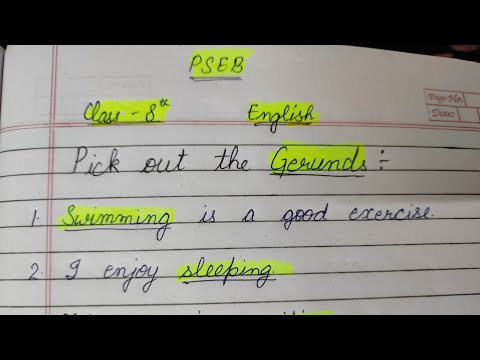 PSEB
Class - 8th English
Pick out the Gerunds :-
1. Swimming is a good exercise.
2. I enjoy sleeping.
Page No.
Date: